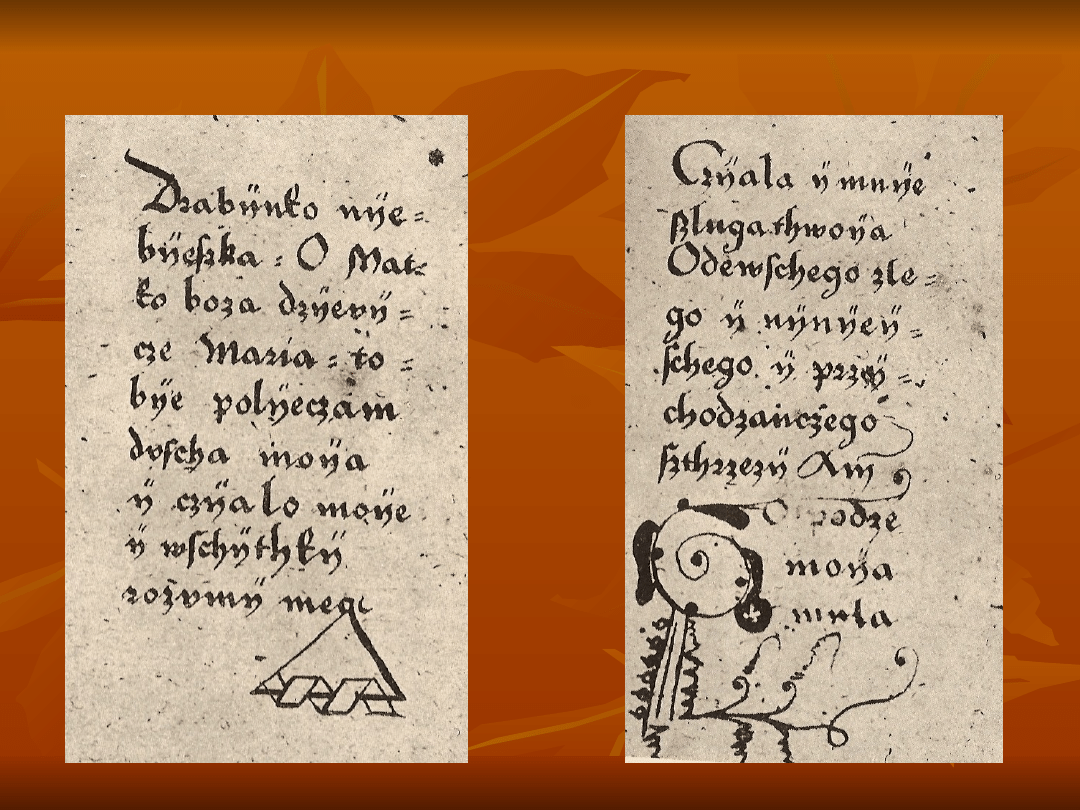 Drabÿnko nÿe=
bÿeszka : O Mat=
ko boza dzÿevÿ=
cze Maria : to=
bÿe polÿeczam
dvscha moÿa
ÿ czÿalo moÿe
ÿ wschÿthkÿ
rozvmÿ mego
Czÿala ÿ mnÿe
szluga thwoÿa
Odewschego zle=
go ÿ nÿnÿeÿ=
schego ÿ przÿ=
chodzanczego
szthrzezÿ Am
podze
moÿa
mÿla